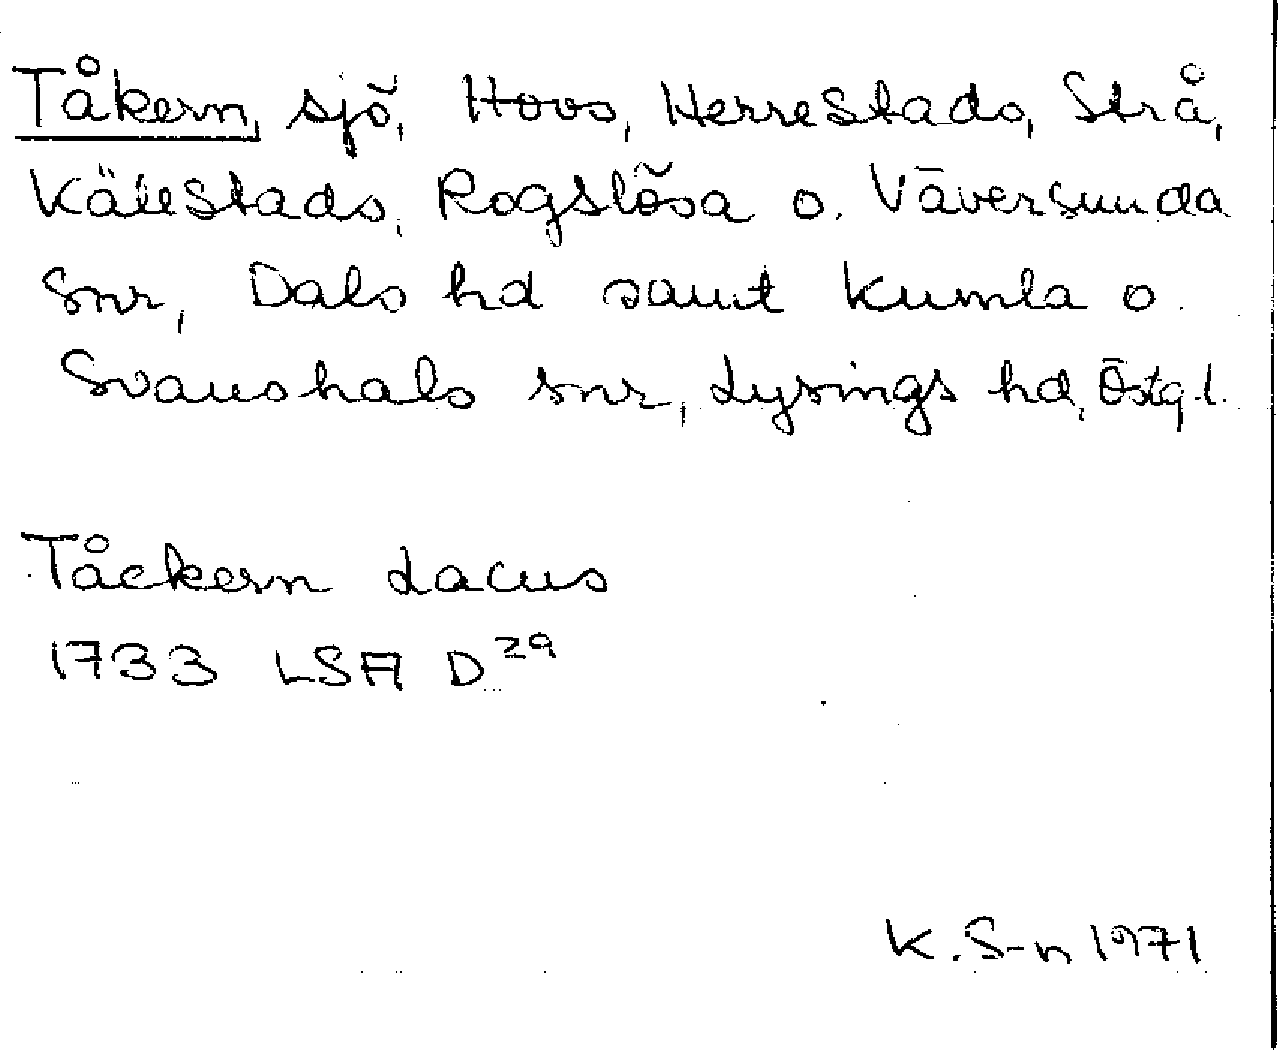 Tåkern, sjö, Hovs, Herrestads, Strå,
Källstads, Rogslösa o. Väversunda
snr, Dals hd samt Kumla o.
Svanshals snr, Lysings hd, Östgl.
Tåckern Lacus
1733 LSA D29
K. S-n 1971